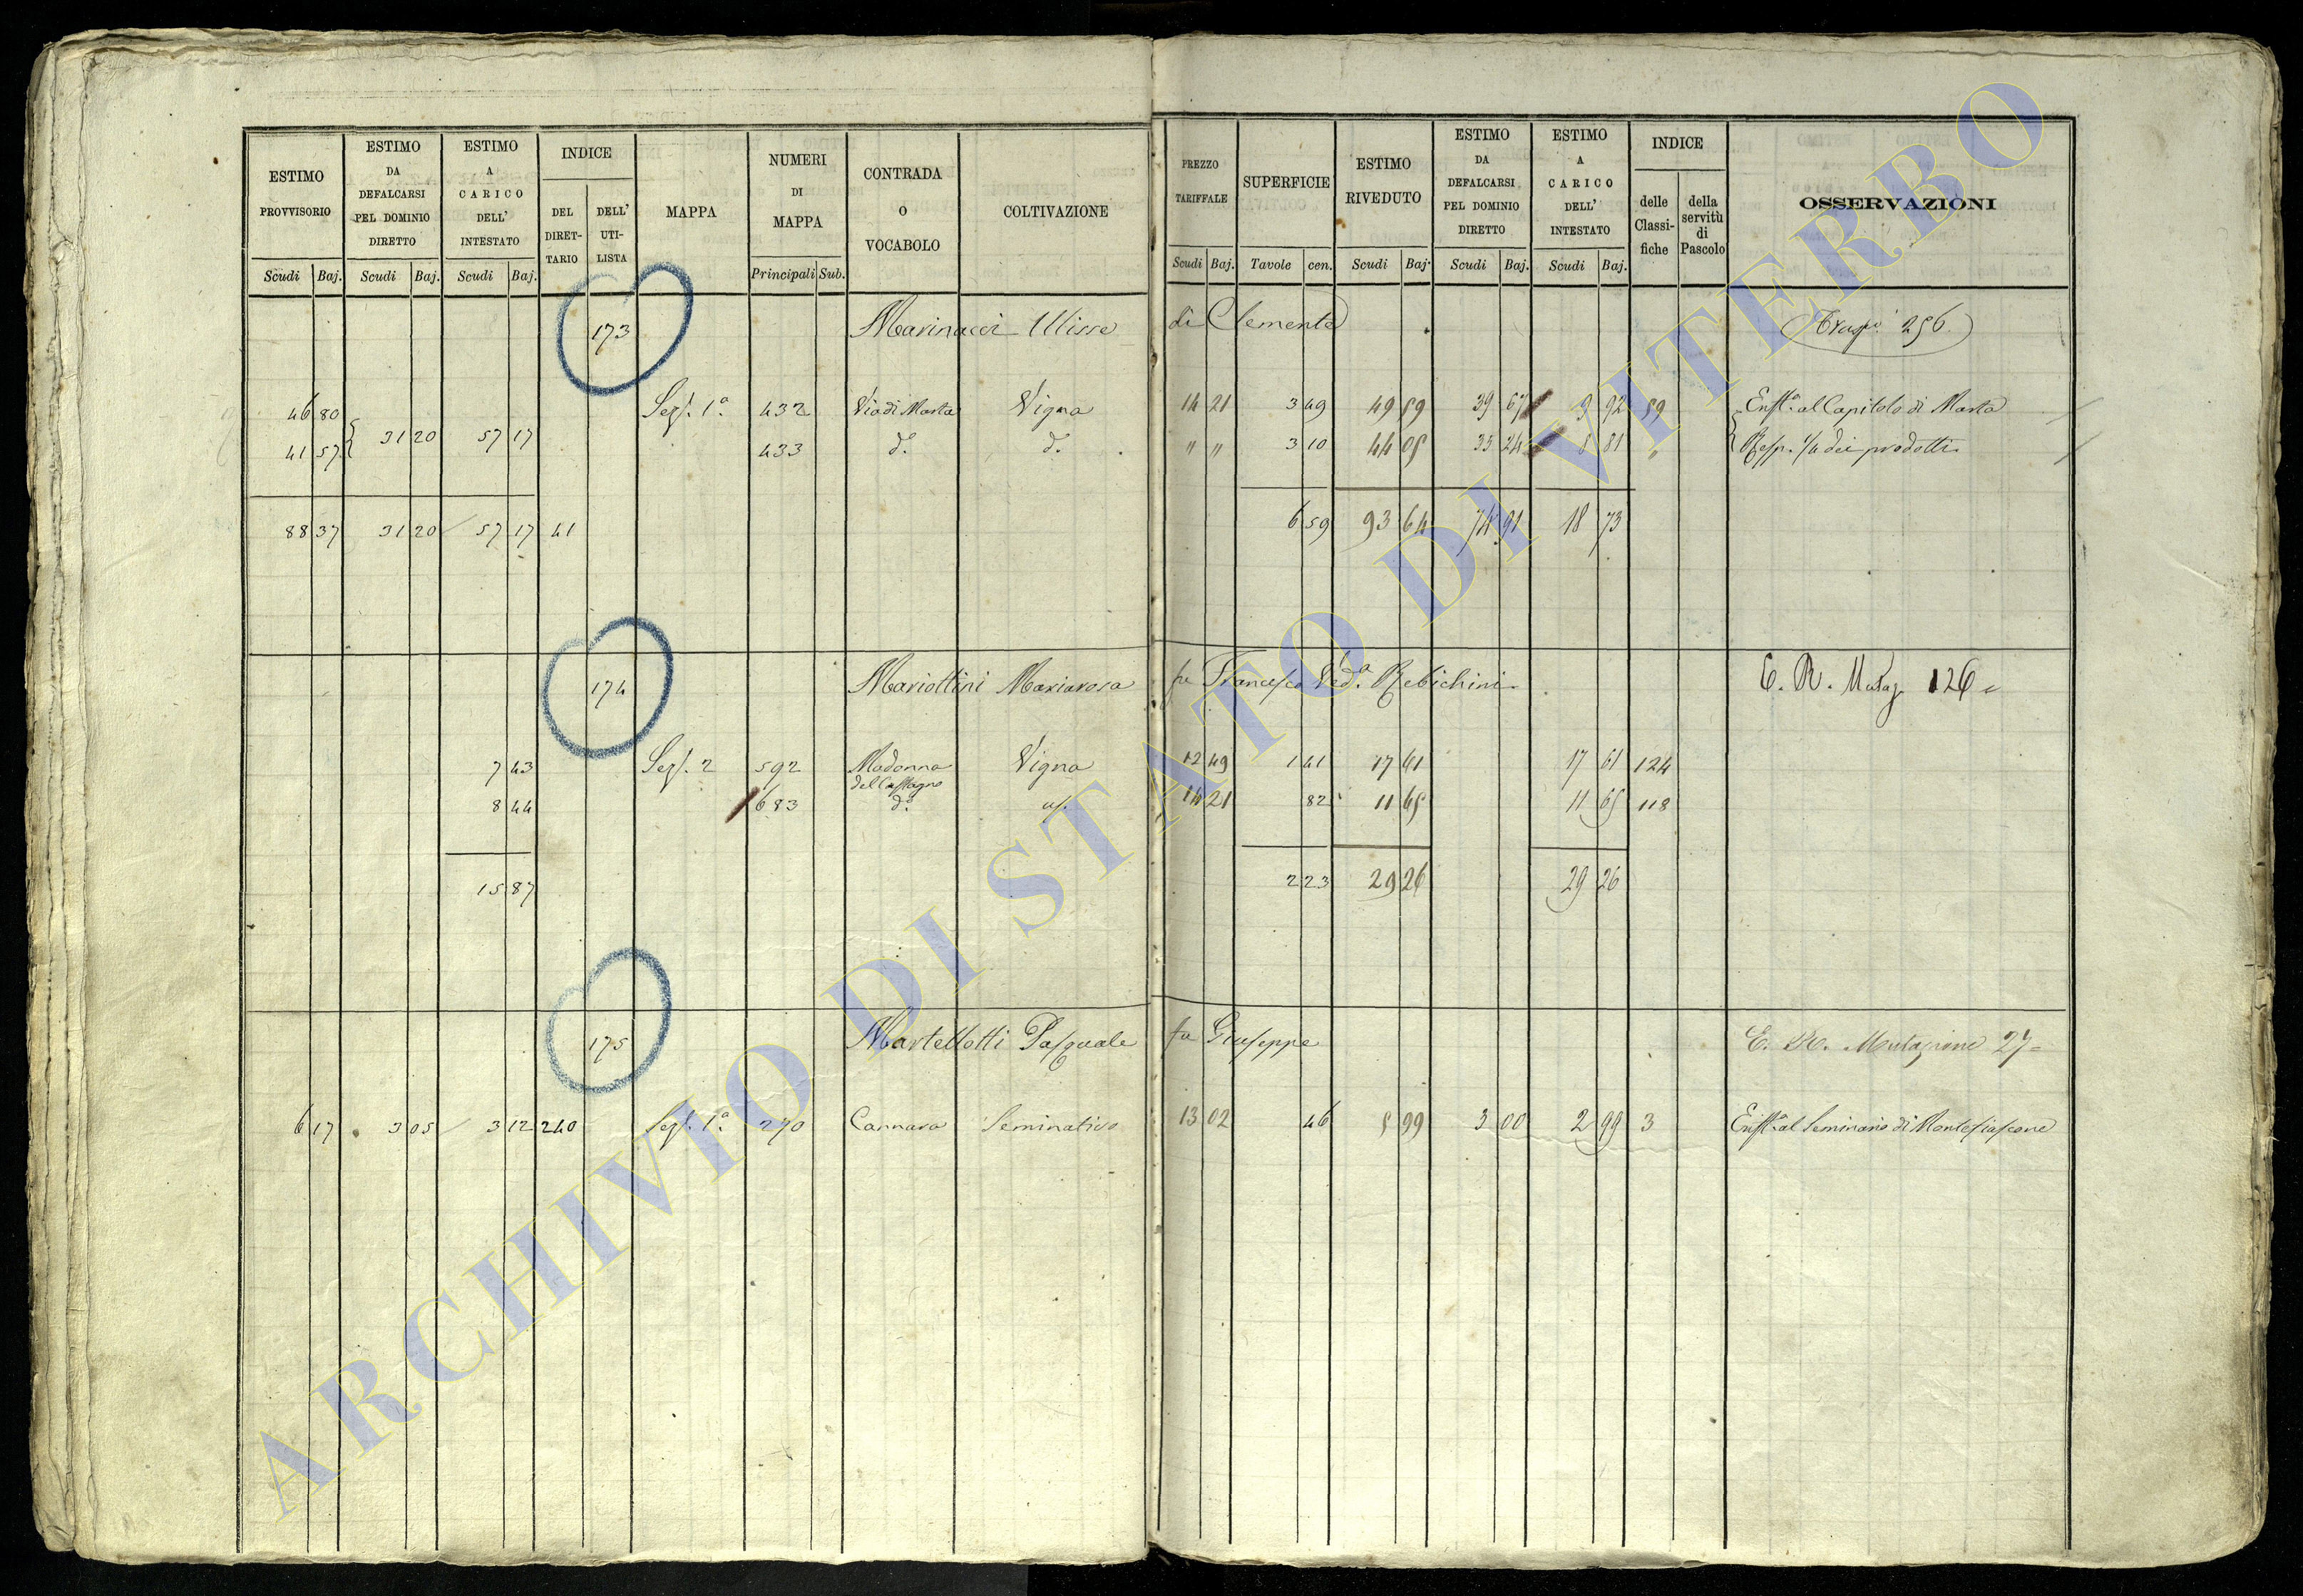 ESTIMO PROVVISORIO
Scudi Baj.
ESTIMO DA DEFALCARSI PEL DOMINIO DIRETTO
Scudi Baj.
ESTIMO A CARICO DELL' INTESTATO
Scudi Baj.
INDICE
DEL DIRET-TARIO
DELL' UTI-LISTA
MAPPA
NUMERI DI MAPPA
Principali Sub.
CONTRADA O VOCABOLO
COLTIVAZIONE
PREZZO TARIFFALE
Scudi Baj.
SUPERFICIE
Tavole cen.
ESTIMO RIVEDUTO
Scudi Baj.
ESTIMO DA DEFALCARSI PEL DOMINIO DIRETTO
Scudi Baj.
ESTIMO A CARICO DELL' INTESTATO
Scudi Baj.
INDICE
delle Classi-fiche
della servitù di Pascolo
OSSERVAZIONI
173 Marinacci Ulisse di Clemente 256
46 80 Sez. 1ª 432 Via di Marta Vigna 14 21 3 49 49 59 39 67 9 92 59 Enft.ª al Capitolo di Marta
41 57 31 20 57 17 433 d.º d.º " " 3 10 44 05 35 24 8 81 " Resp. 1/4 dei prodotti
88 37 31 20 57 17 41 6 59 93 64 74 91 18 73
174 Mariottini Mariarosa fu Francesco Ved.ª Rebichini E. R. Mutaz. 126
7 43 Sez. 2 592 Madonna del Castagno Vigna 12 49 1 41 17 61 17 61 124
8 44 683 d.º 14 21 82 11 65 11 65 118
15 87 2 23 29 26 29 26
175 Martellotti Pasquale fu Giuseppe E. R. Mutazione 27
6 17 3 05 3 12 240 Sez. 1ª 270 Cannara Seminativo 13 02 46 5 99 3 00 2 99 3 Enft.ª al Seminario di Montefiascone
ARCHIVIO DI STATO DI VITERBO